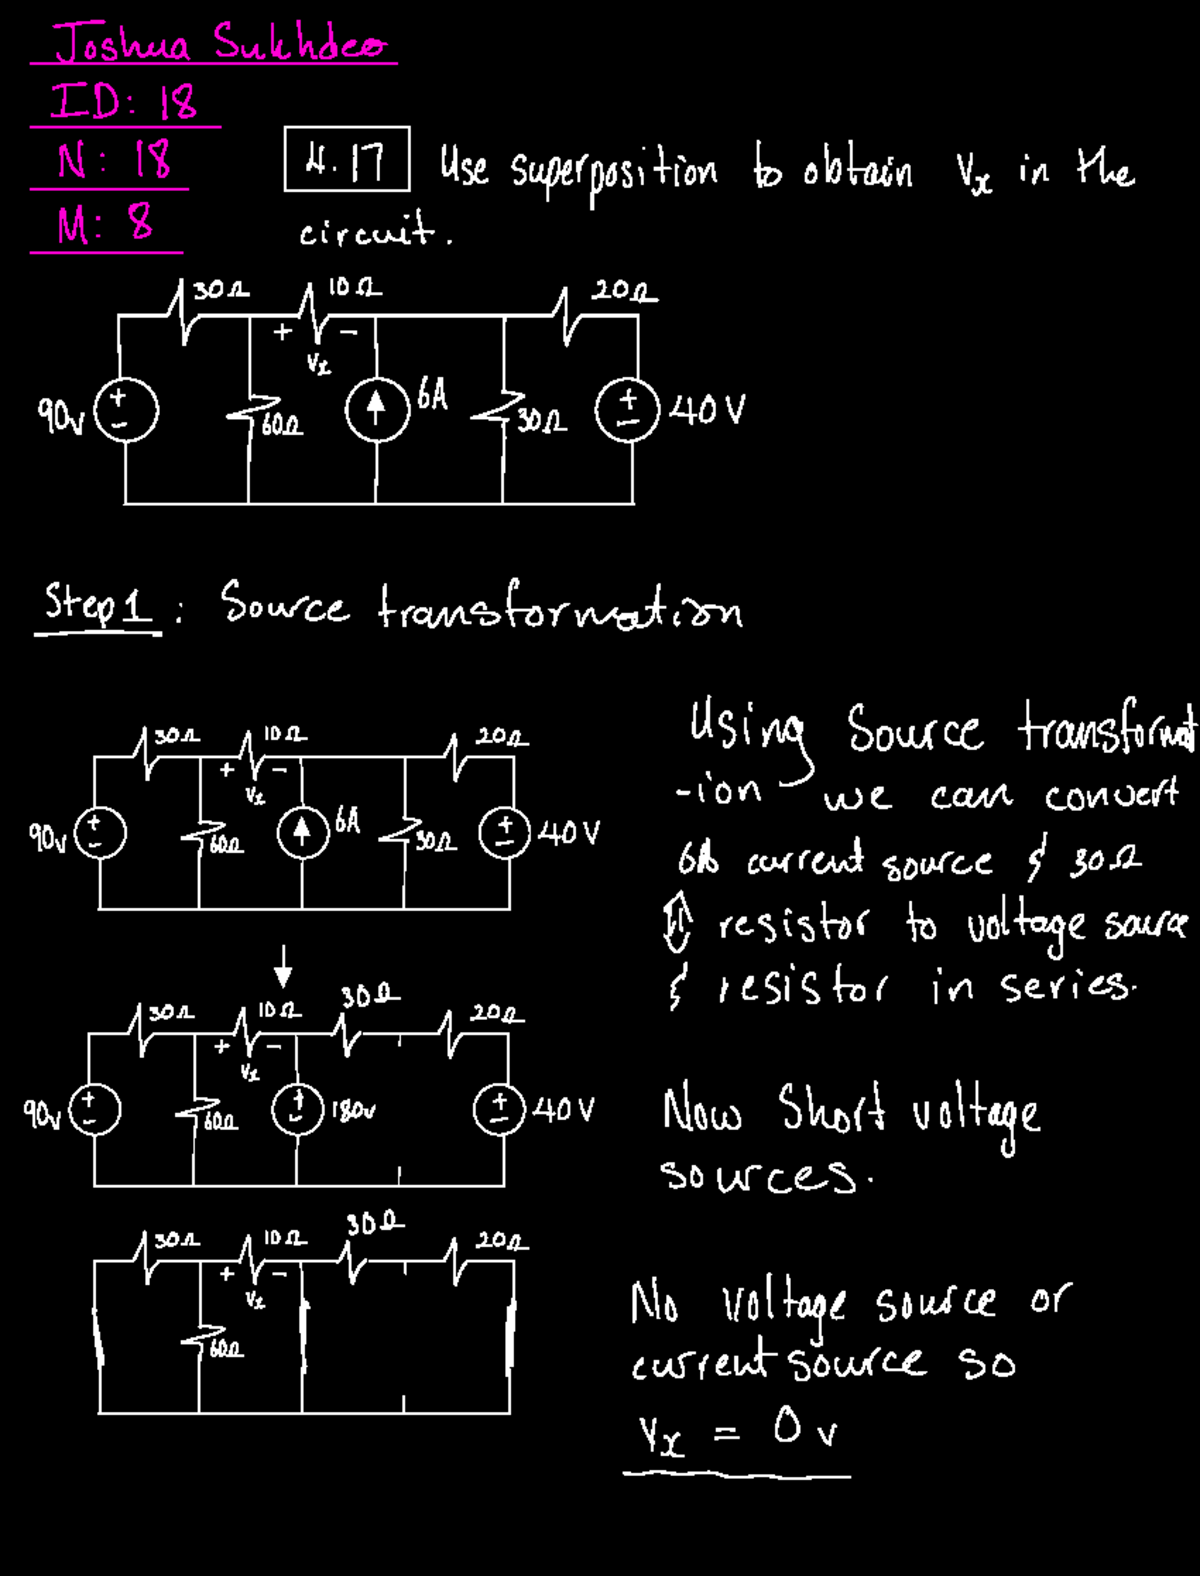 Joshua Sukhdeo
ID: 18
N: 18
M: 8
4.17 Use superposition to obtain Vx in the
circuit.
30Ω 10Ω 20Ω
+ Vx -
90v + - 60Ω 6A 30Ω + - 40V
Step 1: Source transformation
30Ω 10Ω 20Ω
+ Vx -
90v + - 60Ω 6A 30Ω + - 40V
Using Source transformat
-ion we can convert
6A current source & 30Ω
resistor to voltage source
& resistor in series.
30Ω 10Ω 30Ω 20Ω
+ Vx -
90v + - 60Ω + - 180v + - 40V
Now Short voltage
sources.
30Ω 10Ω 30Ω 20Ω
+ Vx -
60Ω
No voltage source or
current source so
Vx = 0v